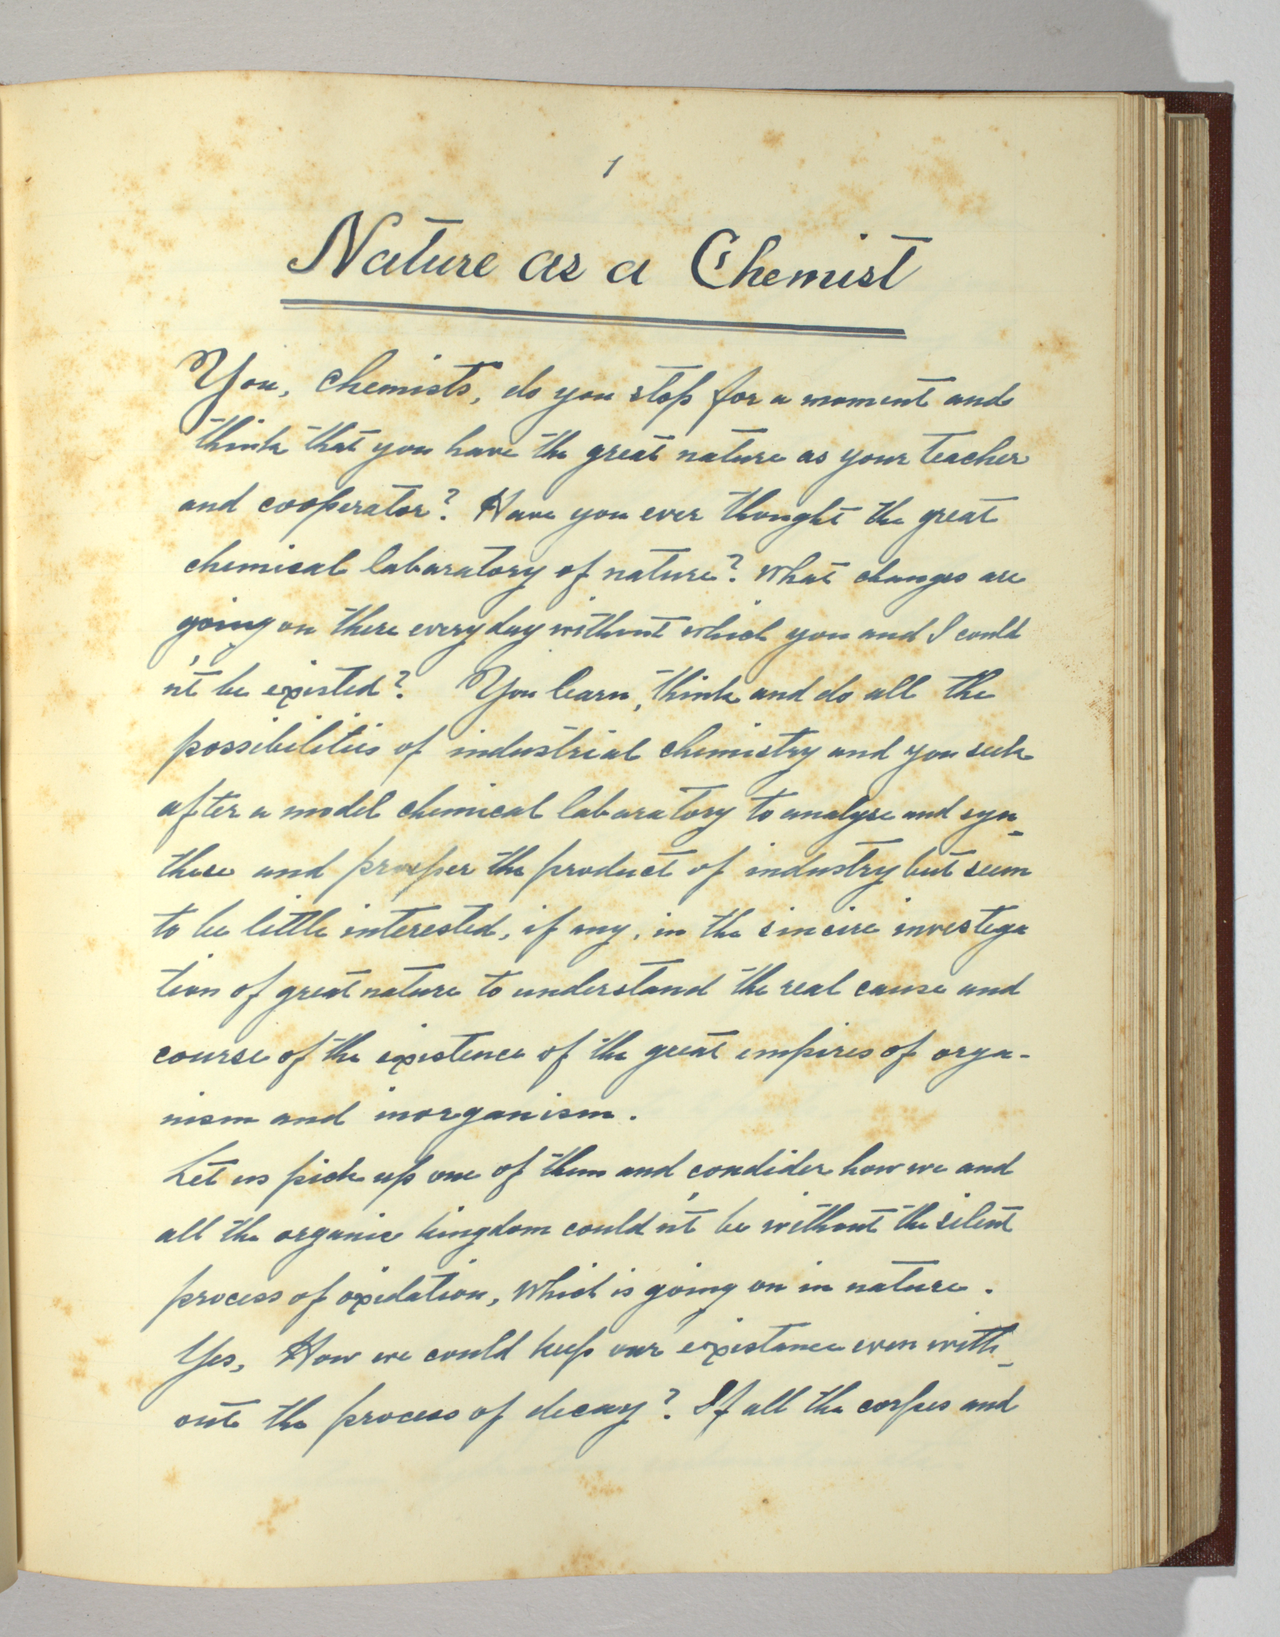 1
Nature as a Chemist
You, Chemists, do you stop for a moment and
think that you have the great nature as your teacher
and cooperator? Have you ever thought the great
chemical labaratory of nature? What changes are
going on there everyday without which you and I could
n't be existed? You learn, think and do all the
possibilities of industrial chemistry and you seek
after a model chemical labaratory to analyse and syn-
these and prosper the product of industry but seem
to be little interested, if any, in the sincire investega
tion of great nature to understand the real cause and
course of the existence of the great empires of orga-
nism and inorganism.
Let us pick up one of them and condider how we and
all the organic kingdom could n't be without the silent
process of oxidation, which is going on in nature.
Yes, How we could keep our existance even with-
out the process of decay? If all the corpes and